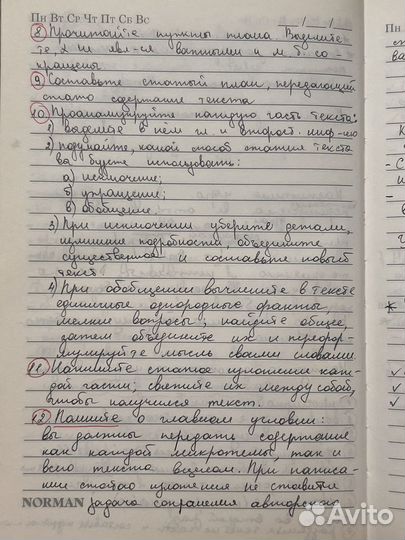 Пн Вт Ср Чт Пт Сб Вс
8) Прочитайте пункты плана. Выделите
те, к-ые явл-ся важными и м.б. со
кращены
9) Составьте сжатый план, передающий
сжато содержание текста
10) Проанализируйте каждую часть текста:
1) выделите в нем гл. и второст. инф-ию
2) подумайте, какой способ сжатия текста
вы будете использовать:
а) исключение;
б) упрощение;
в) обобщение
3) При исключении уберите детали,
излишние подробности, объедините
существенное и составьте новый
текст
4) При обобщении вычлените в тексте
единичные однородные факты,
мелкие вопросы, найдите общее,
затем объедините их и перефор-
мулируйте мысль своими словами
11. Напишите сжатое изложение каж-
дой части; свяжите их между собой,
чтобы получился текст.
12) Помните о главном условии:
вы должны передать содержание
как каждой микротемы, так и
всего текста в целом. При написа-
нии сжатого изложения не ставится
NORMAN задача сохранения авторского
Avito